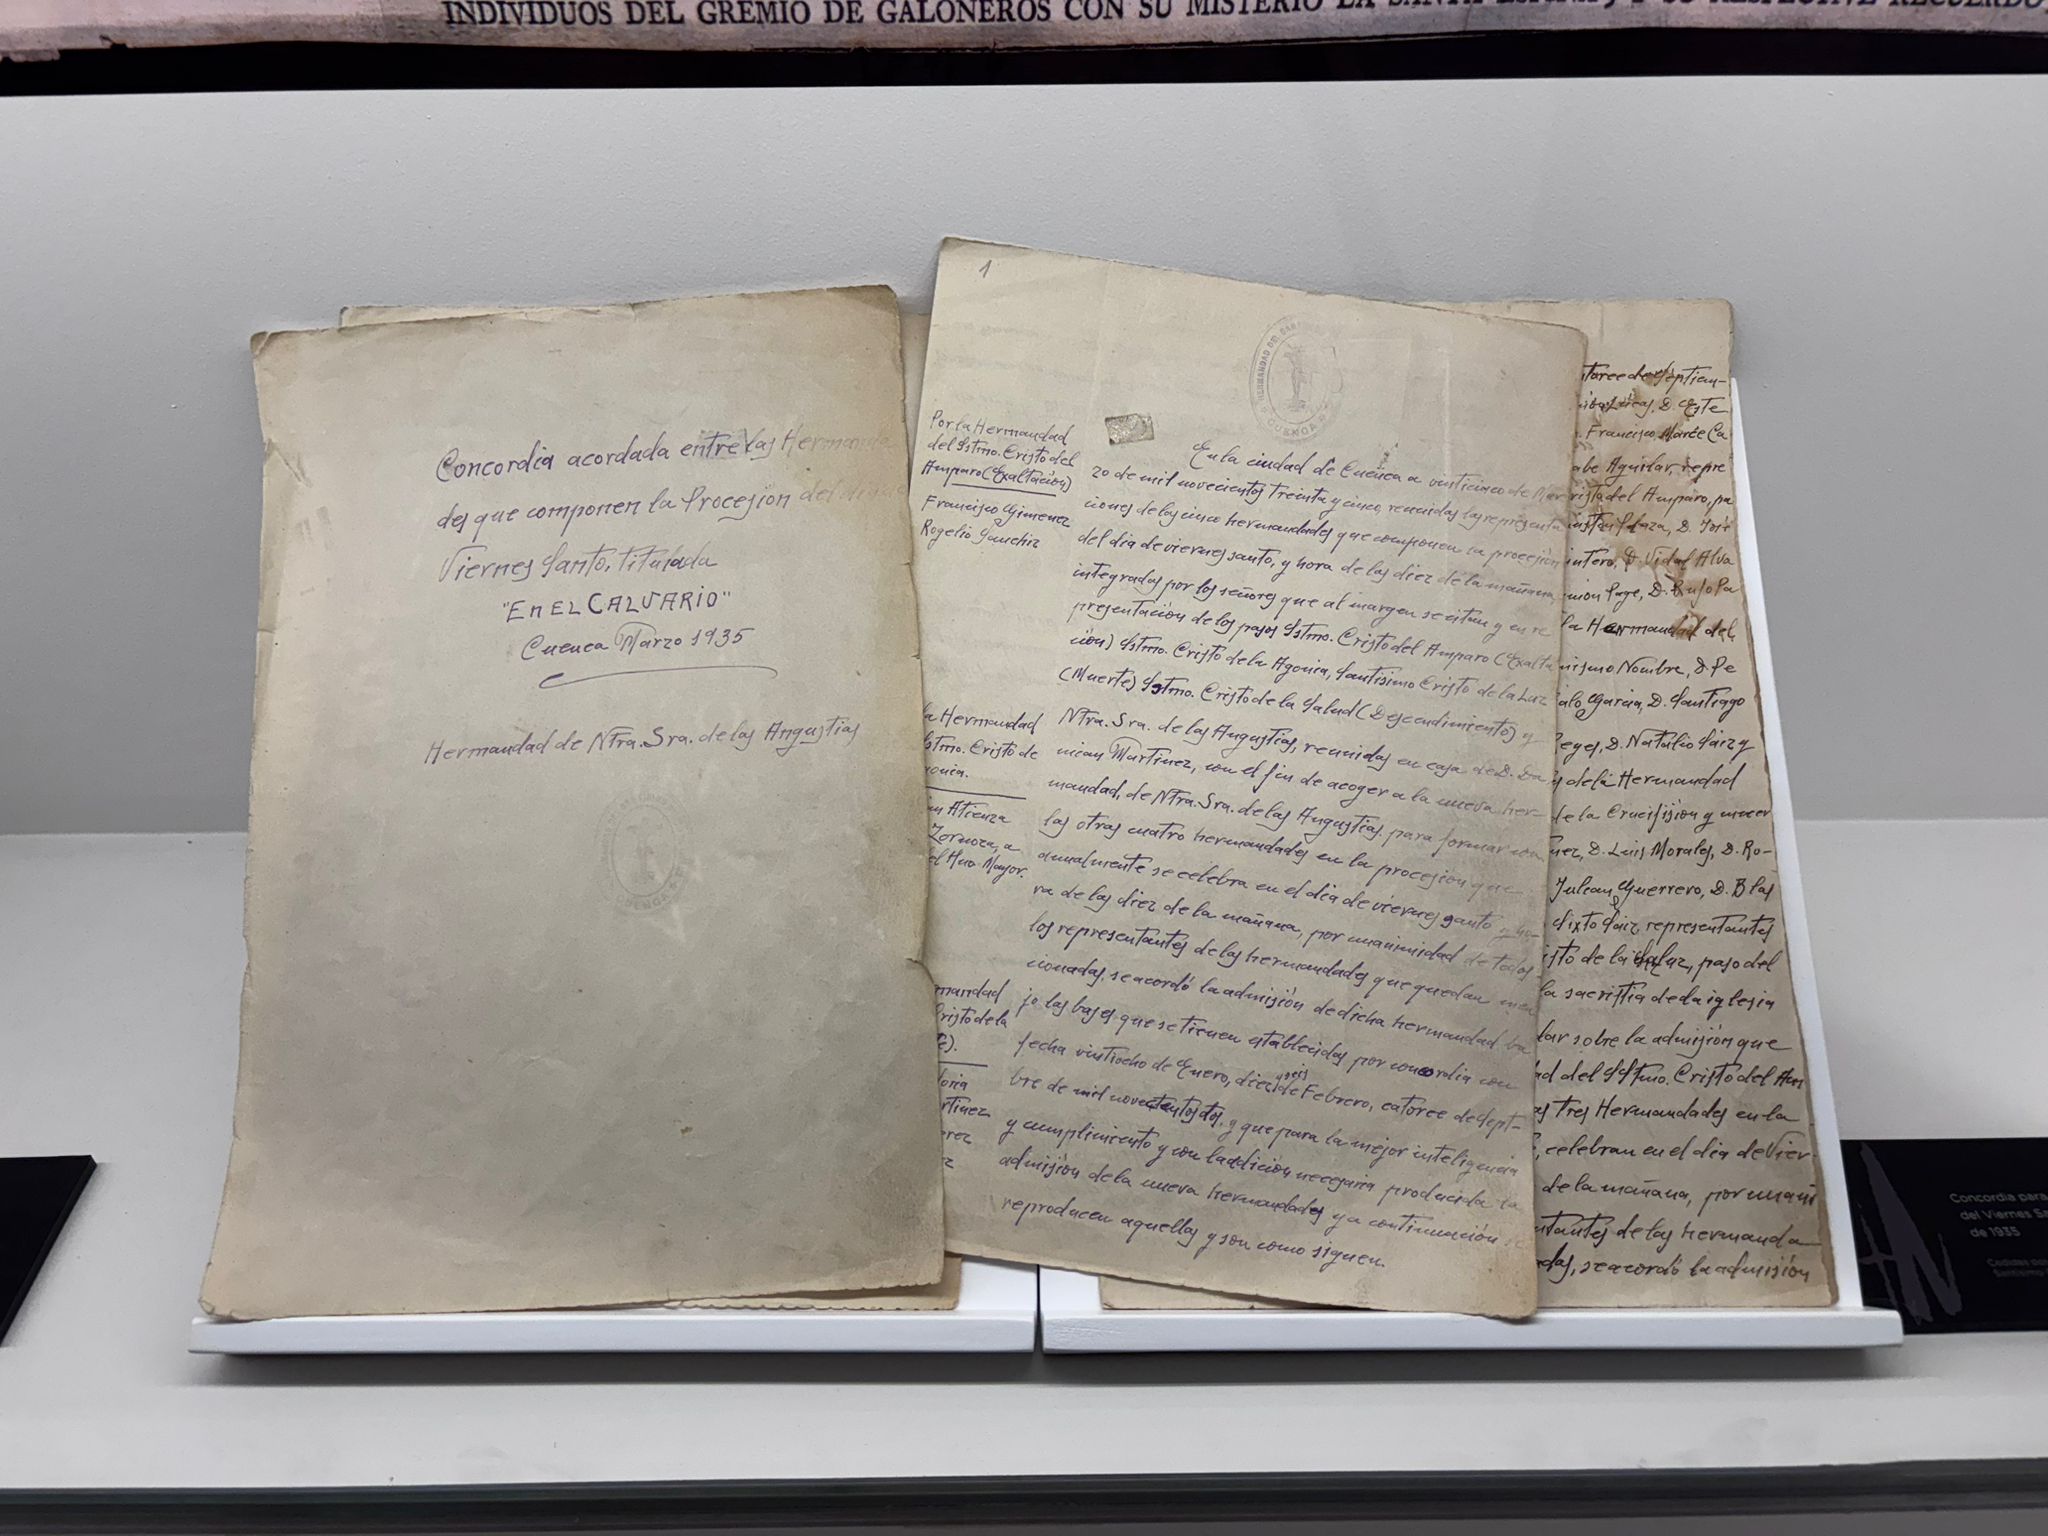 INDIVIDUOS DEL GREMIO DE GALONEROS CON SU MISTERIO LA SANTA ESPINA, Y SU RESPECTIVE RECUERDO,
Concordia acordada entre las Herman
des que componen la Procesion del
Viernes Santo, titulada
"En EL CALVARIO"
Cuenca Marzo 1935
Hermandad de Ntra. Sra. de las Angustias
CUENCA
1
HERMANDAD DEL
CUENCA
Por la Hermandad
del Sstmo. Cristo del
Amparo (Exaltación)
Francisco Gimenez
Rogelio Sanchiz
la Hermandad
Sstmo. Cristo de
Atienza
Zornoza, a
Hno. Mayor.
Cristo de la
En la ciudad de Cuenca a vinticinco de Mar
zo de mil novecientos treinta y cinco, reunidas las representa
ciones de las cinco hermandades que componen la procesión
del dia de viernes santo, y hora de las diez de la mañana,
integradas por los señores que al margen se citan y en re
presentación de los pasos Sstmo. Cristo del Amparo (Exalta
ción) Sstmo. Cristo de la Agonia, Santisimo Cristo de la Luz
(Muerte) Sstmo. Cristo de la Salud (Descendimiento) y
Ntra. Sra. de las Angustias, reunidas en casa de D. Da
mian Martinez, con el fin de acoger a la nueva her-
mandad, de Ntra. Sra. de las Angustias. para formar con
las otras cuatro hermandades en la procesion que
anualmente se celebra en el dia de viernes santo y ho-
ra de las diez de la mañana, por unanimidad de todos
los representantes de las hermandades que quedan men
cionadas. se acordó la admisión de dicha hermandad ba
jo las bases que se tienen establecidas por concordia con
fecha vintiocho de Enero, diez y seis de Febrero, catorce de Sept-
bre de mil novecientos dos, y que para la mejor inteligencia
y cumplimiento y con la adición necesaria producida la
admisión de la nueva hermandades y a continuación se
reproducen aquellas y son como siguen.
de Septiem-
Lucas, D. Este
Francisco, Marce Ca
Aguilar, repre
del Amparo, pa
Plaza, D. José
D. Vidal Alva
Page, D. Rufo Pa
la Hermandad del
Nombre, D. Pe
Garcia, D. Santiago
D. Natalio Saiz y
de la Hermandad
de la Crucifision y muer
D. Luis Morales, D. Ro-
Julian Guerrero, D. Blas
Sixto Saiz, representantes
de la Luz, paso del
la sacristia de la iglesia
sobre la admisión que
del SStmo. Cristo del Am
tres Hermandades en la
celebran en el dia de Vier-
de la mañana, por unani
de las hermanda-
se acordó la admisión
Concordia para
del Viernes Sa
de 1935